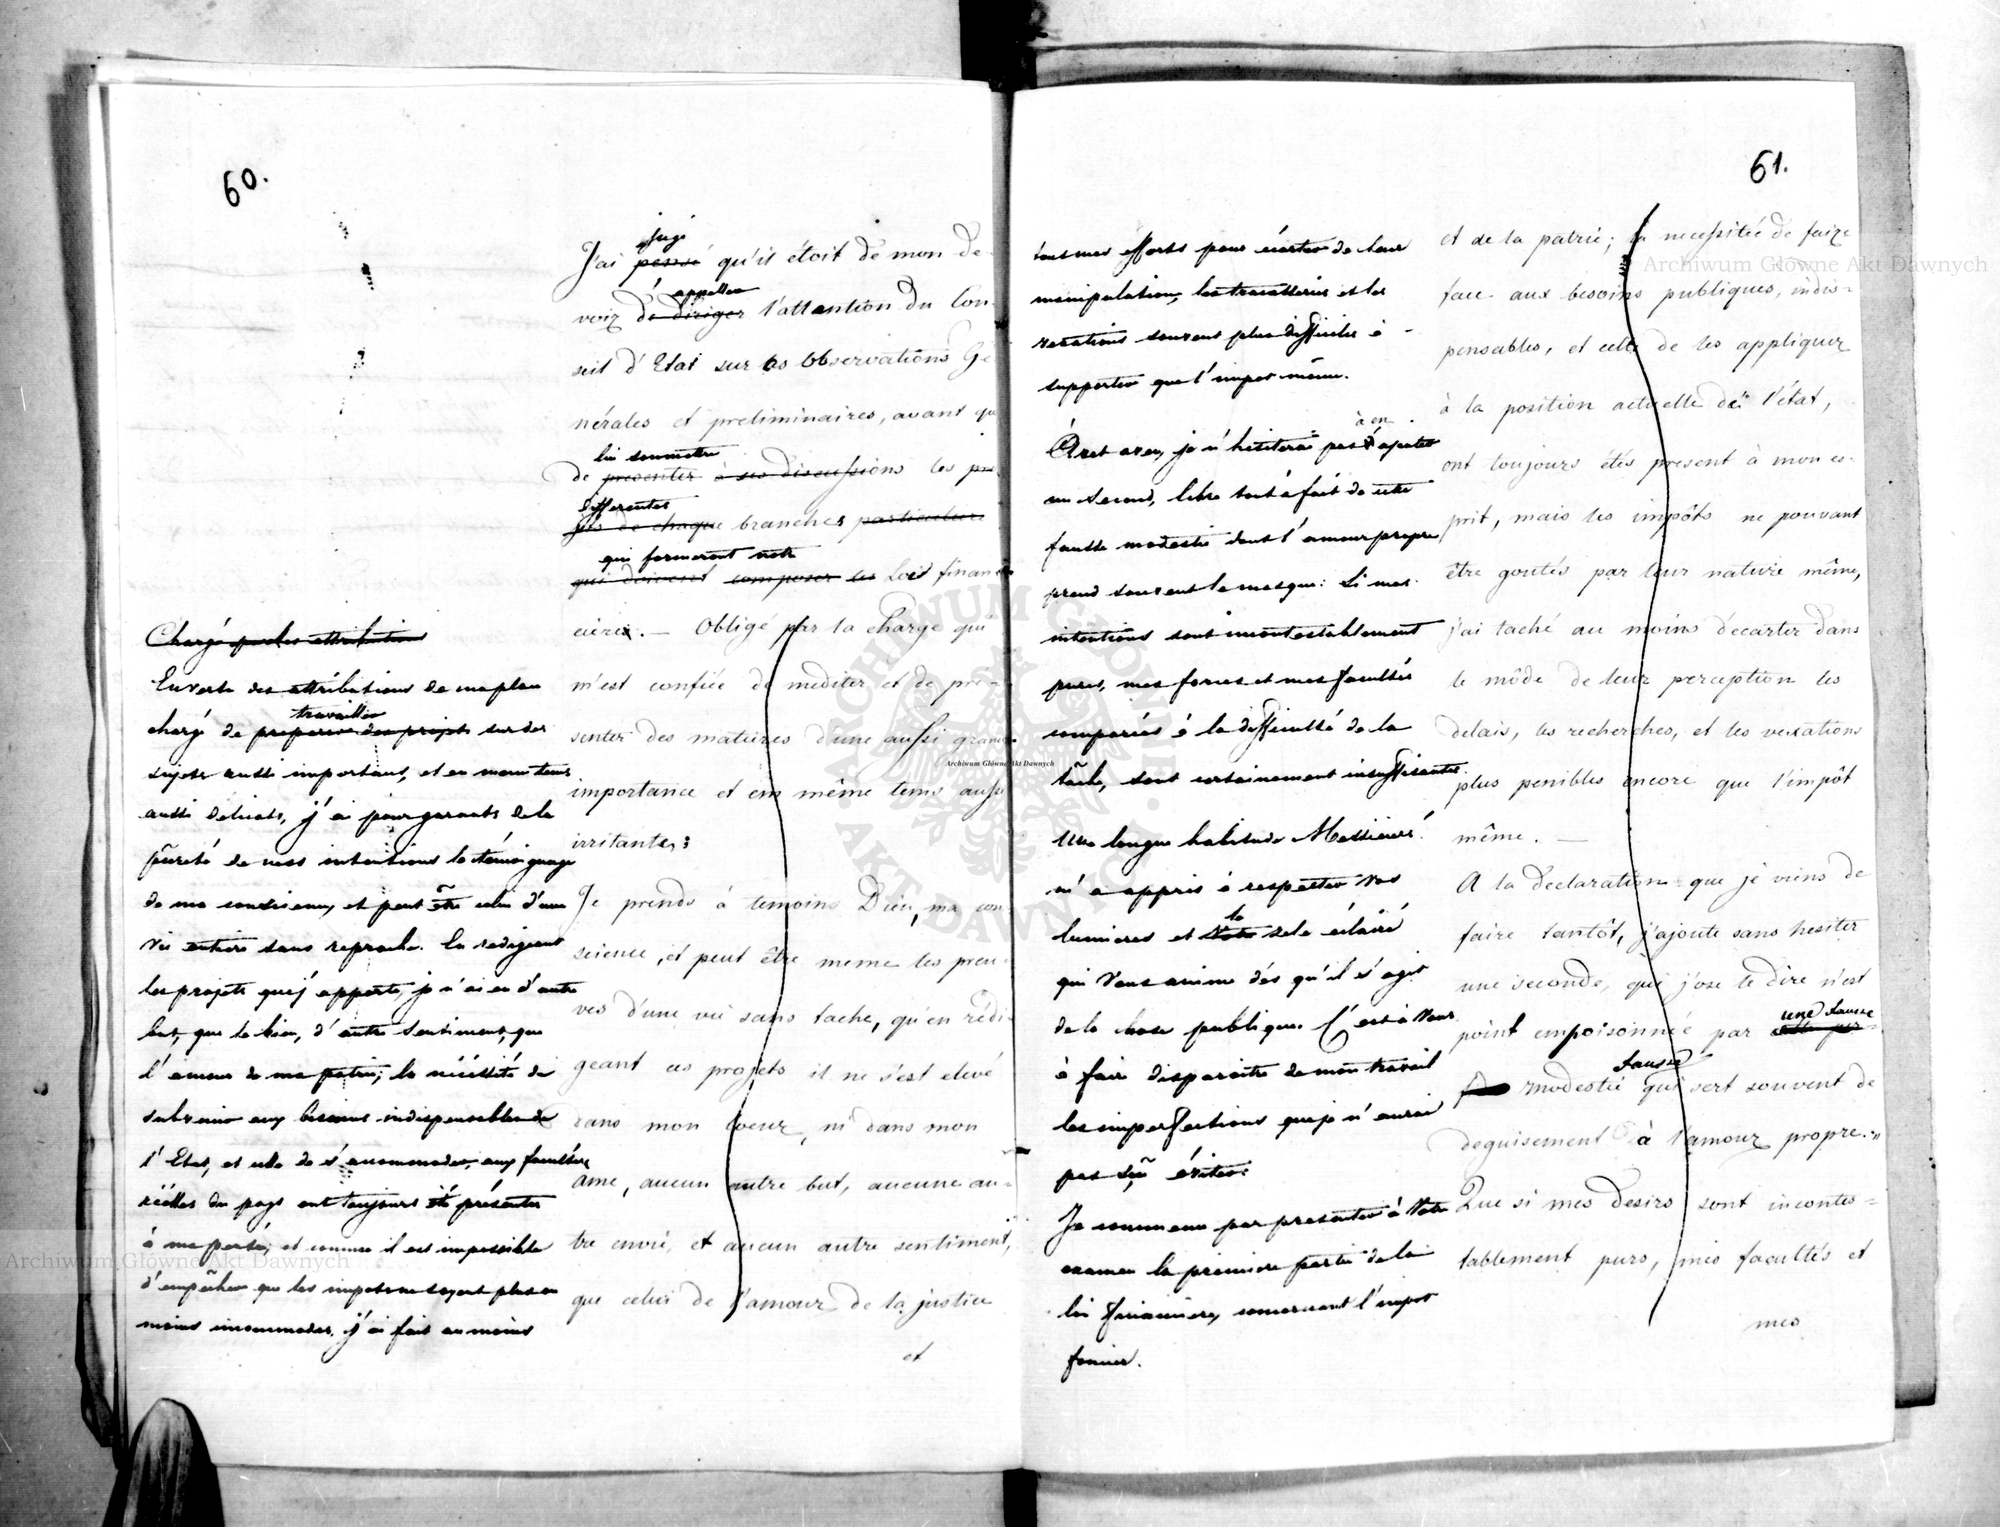 60.
jugé
J'ai pensé qu'il étoit de mon de-
appeller
voir de diriger l'attention du Con-
seil d'Etat sur les Observations Gé
nérales et preliminaires, avant que
lui soumettre
de presenter à ses discussions les pro
differentes
jets de chaque branches particuliere
qui formeront notre
qui doivent composer les Loix finan
cieres. — Obligé par la charge qui
m'est confiée de mediter et de pre-
senter des matieres d'une aussi grande
importance et em même tems aussi
irritantes:
Je prends à temoins Dieu, ma con
science, et peut être meme les preu
ves d'une vie sans tache, qu'en rédi
geant ces projets il ne s'est elevé
dans mon Coeur, ni dans mon
ame, aucun autre but, aucune au-
tre envie, et aucun autre sentiment,
que celui de l'amour de la justice
et
Chargé par les attributions
En vertu des attributions de ma place
travailler
chargé de préparer des projets sur des
sujets aussi important, et en meme tems
aussi délicats, j'ai pour garants de la
pureté de mes intentions le témoignage
de ma conscience, et peut être celui d'une
vie entière sans reproche. En redigeant
les projets que j'apporte, je n'ai eu d'autre
but, que le bien, d'autre sentiment, que
l'amour de ma patrie; la nécéssité de
subvenir aux besoins indispensables de
l'Etat, et celle de s'accommoder aux facultés
réelles du pays ont toujours été présentes
à ma pensée; et comme il est impossible
d'empêcher que les impots ne soyent plus ou
moins incommodes, j'ai fait au moins
61.
tous mes efforts pour écarter de leur
manipulation, les tracasseries et les
vexations souvent plus difficiles à
supporter que l'impot même.
à en
À cet aveu, je n'hésiterai pas d'ajouter
un second, libre tout à fait de cette
fausse modestie dont l'amour propre
prend souvent le masque: Si mes
intentions sont incontestablement
pures, mes forces et mes facultés
comparées à la difficulté de la
tâche, sont certainement insuffisantes.
Une longue habitude Messieurs!
m'a appris à respecter Vos
le
lumieres et Votre zele éclairé
qui Vous anime dès qu'il s'agit
de la chose publique. C'est à Vous
à faire disparoitre de mon travail
les imperfections que je n'aurai
pas sçu éviter.
Je commence par presenter à Votre
examen la première partie de la
loi financiere, concernant l'impot
foncier.
et de la patrie; la necessitée de faire
face aux besoins publiques, indis-
pensables, et celle de les appliquer
à la position actuelle de l'état,
ont toujours étés present à mon es-
prit, mais les impôts ne pouvant
être goutés par leur nature même,
j'ai taché au moins d'ecarter dans
le môde de leur perception les
delais, les recherches, et les vexations
plus penibles encore que l'impôt
même. —
A la declaration que je viens de
faire tantôt, j'ajoute sans hesiter
une seconde, qui j'ose le dire n'est
une fausse
point empoisonnée par
fausse
modestie qui sert souvent de
deguisement à l'amour propre.
Que si mes desirs sont incontes-
tablement purs, mes facultés et
mes
Archiwum Główne Akt Dawnych
Archiwum Główne Akt Dawnych
Archiwum Główne Akt Dawnych
ARCHIWUM GŁÓWNE AKT DAWNYCH